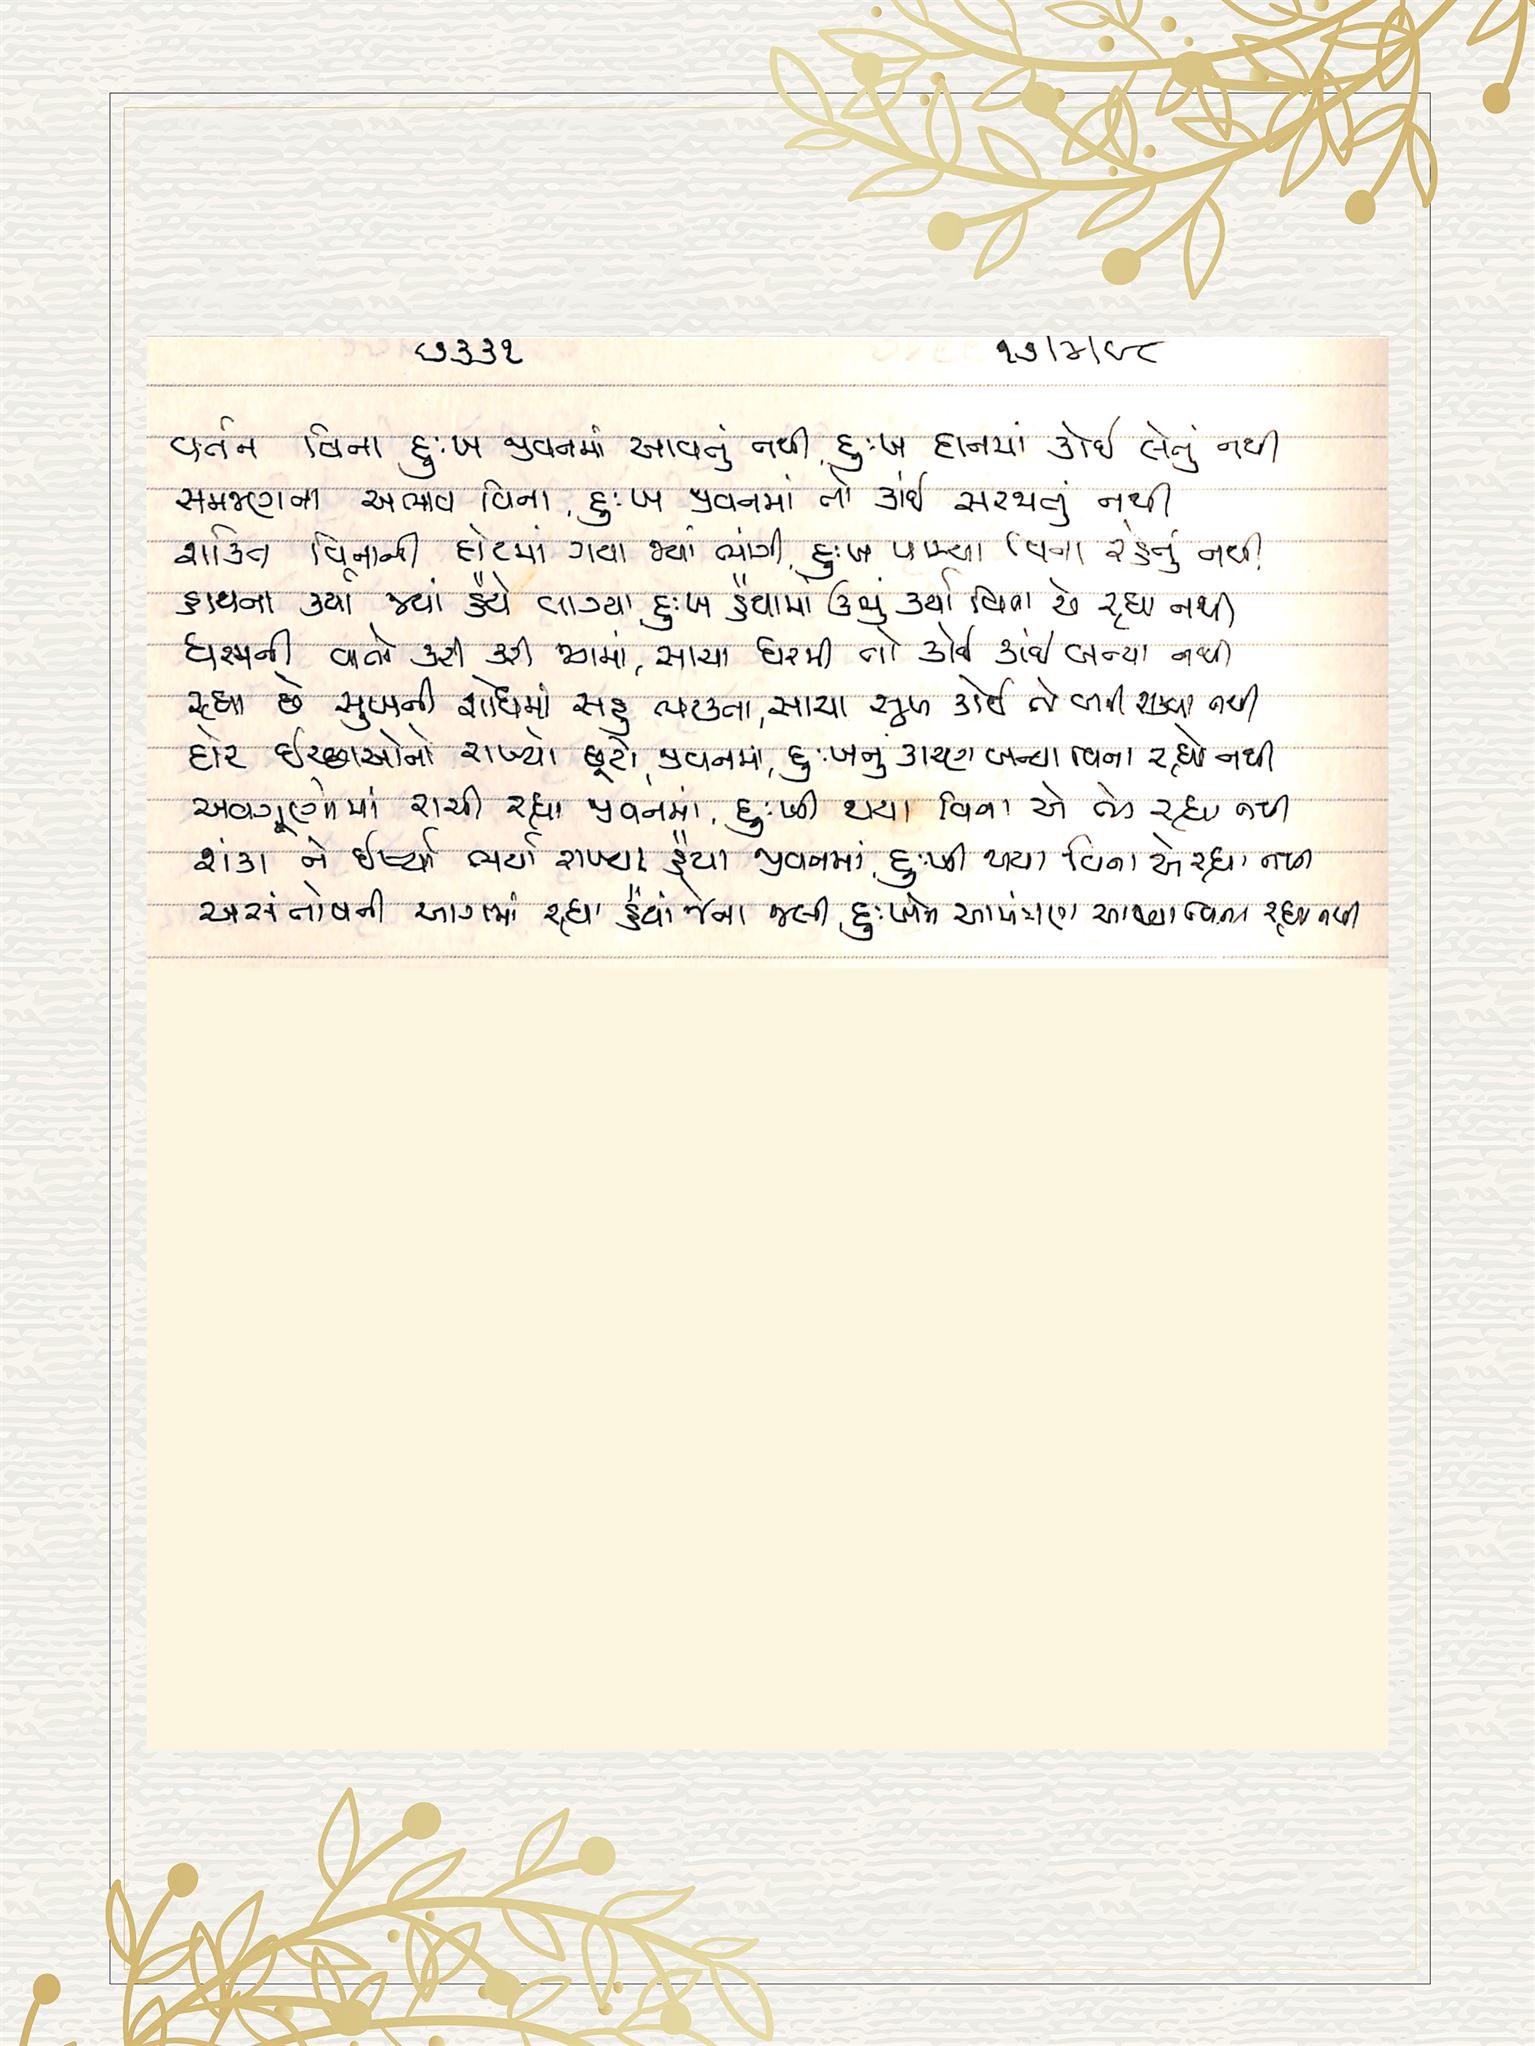 ૬૭૩૩૧ ૧૭/૪/૯૮
વર્તન વિના દુઃખ જીવનમાં આવતું નથી, દુઃખ દાનમાં કોઈ લેતું નથી
સમજણના અભાવ વિના, દુઃખ જીવનમાં તો કાંઈ સરજાતું નથી
શક્તિ વિનાની દોટમાં ગયા જ્યાં ભાંગી, દુઃખ પામ્યા વિના રહેતું નથી
કર્યા જ્યાં હૈયે લાગ્યા, દુઃખ હૈયામાં ઊભું કર્યા વિના એ રહ્યા નથી
ધરમની વાતો કરી કરી જગમાં, સાચા ધરમી તો કોઈ કાંઈ બન્યા નથી
રહ્યા છે સુખની શોધમાં સહુ ભટકતા, સાચા સુખ કોઈ તો બની શક્યા નથી
દોર ઈચ્છાઓનો રાખ્યો છૂટો, જીવનમાં, દુઃખનું કારણ બન્યા વિના રહ્યો નથી
અવગુણોમાં રાચી રહ્યા જીવનમાં, દુઃખી થયા વિના એ તો રહ્યા નથી
શંકા ને ઈર્ષ્યા ભર્યા રાખ્યા હૈયા જીવનમાં, દુઃખી થયા વિના એ રહ્યા નથી
અસંતોષની આગમાં રહ્યા હૈયાં જેના જલી, દુઃખોને આમંત્રણ આપ્યા વિના રહ્યા નથી